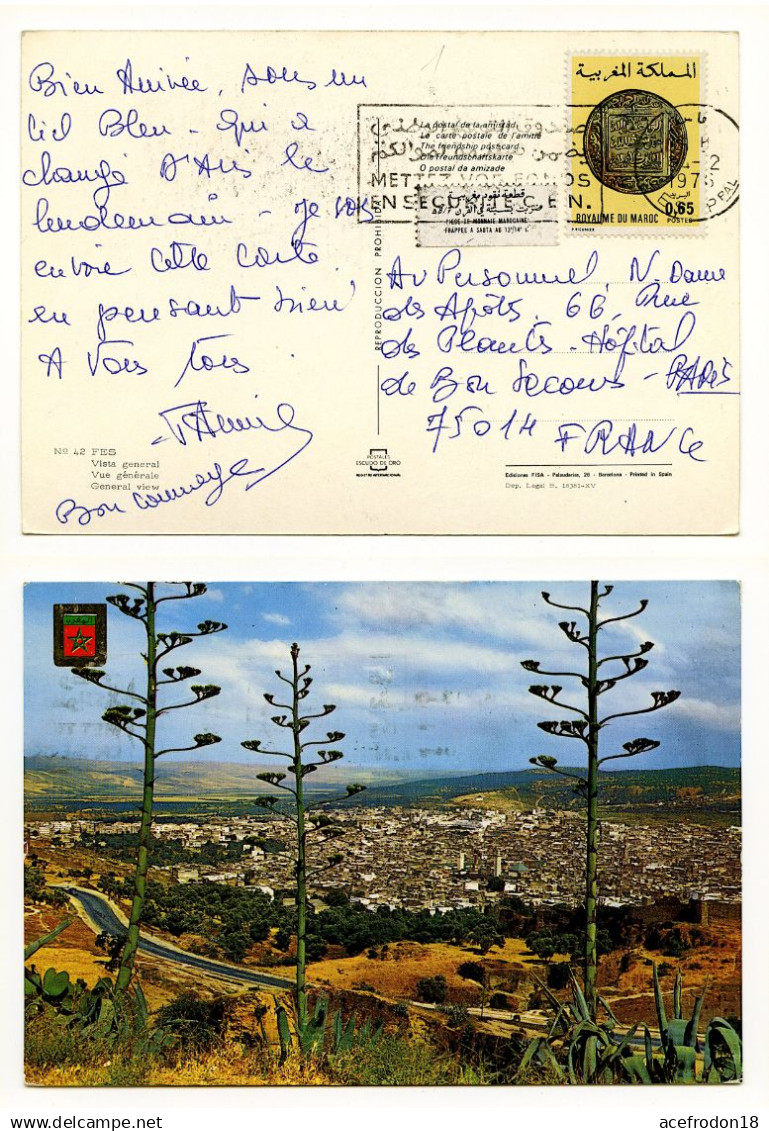 Bien Arrivée, sous un
ciel Bleu - qui a
changé d'Avis le
lendemain - je vous
envoie cette carte
en pensant bien
A Vous tous.
Bon courage
Nº 42 FES
Vista general
Vue générale
General view
La postal de la amistad
La carte postale de l'amitié
The friendship postcard
Die Freundschaftskarte
O postal da amizade
METTEZ VOS FONDS
EN SECURITE C.E.N.
1976
المملكة المغربية
ROYAUME DU MAROC
0,65
POSTES
البريد
PIECE DE MONNAIE MAROCAINE
FRAPPEE A SABTA AU 13º/14º S.
REPRODUCCION PROHIBIDA
Au Personnel, N. Dame
des Apôts. 66, Rue
des Plants - Hôpital
de Bon Secours - PARIS
75014
FRANCE
POSTALES
ESCUDO DE ORO
Ediciones FISA - Palaudarias, 26 - Barcelona - Printed in Spain
Dep. Legal B. 18361-XV
المغرب
acefrodon18